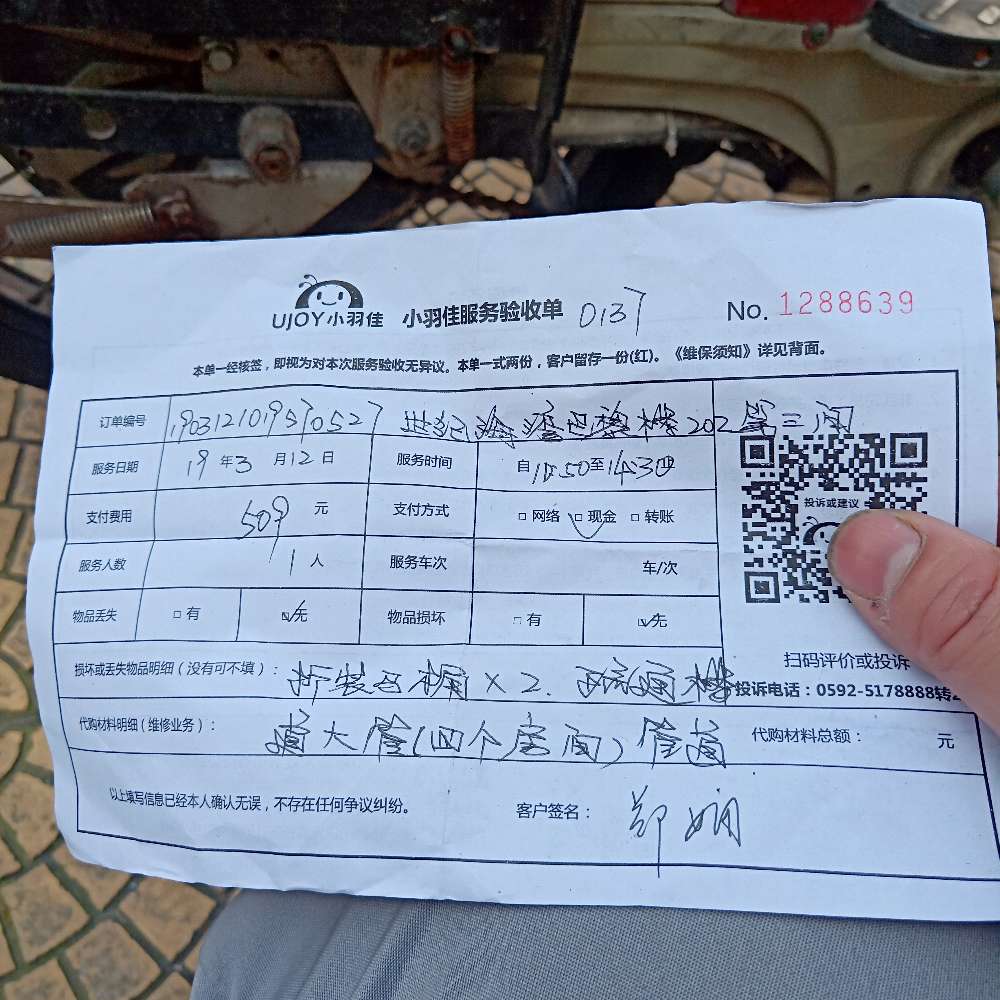 UJOY小羽佳 小羽佳服务验收单 0137 No. 1288639
本单一经核签，即视为对本次服务验收无异议。本单一式两份，客户留存一份(红)。《维保须知》详见背面。
订单编号 1903121019570527 世纪 楼202 第三间
服务日期 19年3月12日 服务时间 自 至
支付费用 509 元 支付方式 □网络 □现金 □转账
服务人数 1人 服务车次 车/次
物品丢失 □有 □无 物品损坏 □有 □无
投诉或建议
扫码评价或投诉
投诉电话：0592-5178888转2
损坏或丢失物品明细（没有可不填）： 拆装马桶×2.
代购材料明细（维修业务）： 大 (四个房间) 管道 代购材料总额： 元
以上填写信息已经本人确认无误，不存在任何争议纠纷。 客户签名： 郑娴